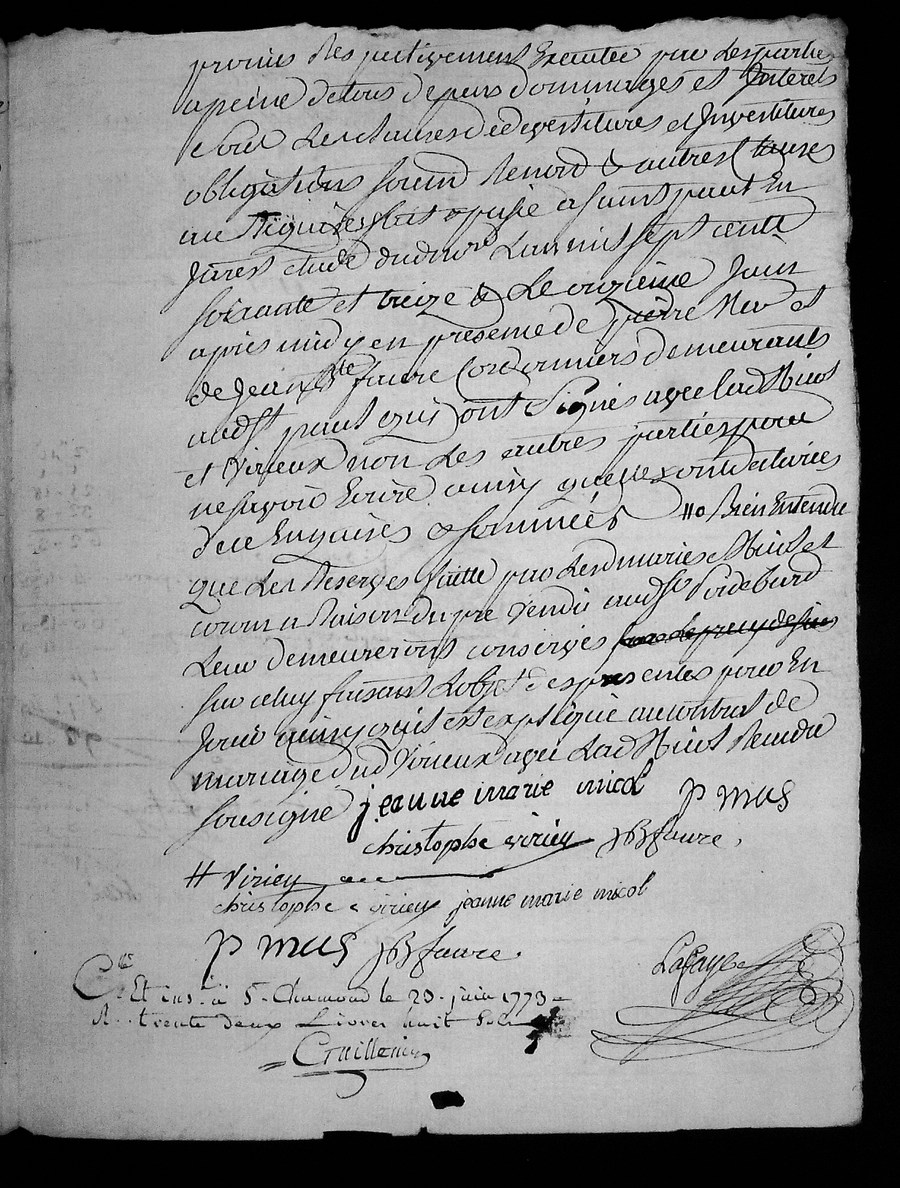 promis respectivement Executée par les parties
a peine de tous depens dommages et Interets
sous les clauses de devestitures et Investitures
obligations soumis Renond & autres Clauses
au Requises fait & passé a saint paul En
Jarest etude dud no.re Lan mil sept cents
soixante et treize & Le onzieme Juin
apres midy en presence de pierre Mus et
de Jean Bte faure Cordonniers demeurants
aud st paul qui ont Signés avec lad Micol
et Virieux non les autres parties pour
ne savoir Ecrire ainsy quelles ont declarées
de ce Enquises & sommées #o Bien Entendu
que Les Reserves faitte par Lesd mariés Micol et
a Raison du pré vendu aud sr
Leur demeureront conservés
sur celuy faisant Lobjet des presentes pour En
Jouir ainsy quil est expliqué au contrat de
mariage dud Virieux avec Lad Micol
sousigné jeanne marie micol p mus
christophe viriey JB faure.
# Viriey
christophe viriey jeanne marie micol
p mus JB faure.
Lafaye
C.lé Et ins. à St. Chamond le 23. juin 1773
R. trente deux Livres huit sols